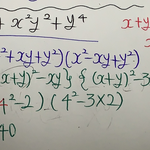 + x²y² + y⁴
x + y
²+xy+y²)(x²-xy+y²)
x+y)²-xy}{(x+y)²-3
4²-2).(4²-3×2)
40